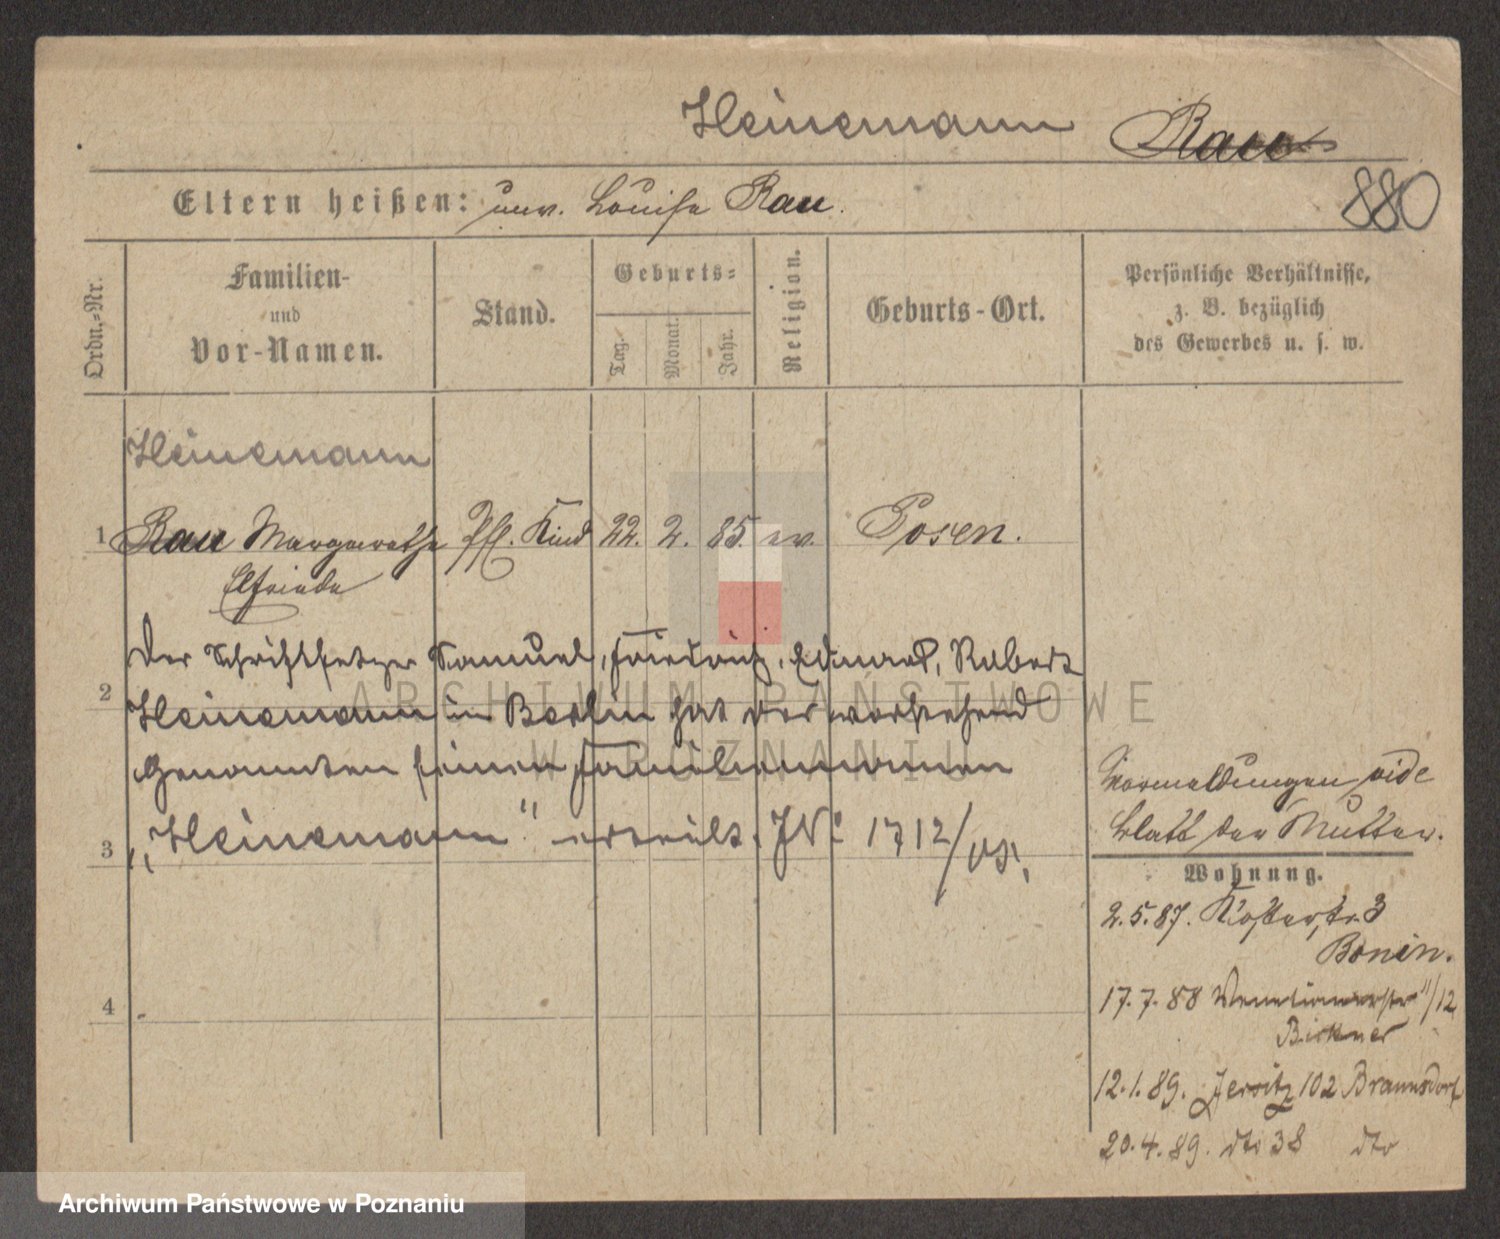 Heinemann Rau
880
Eltern heißen: unv. Louise Rau.
Ordn.-Nr.
Familien-
und
Vor-Namen.
Stand.
Geburts-
Tag.
Monat.
Jahr.
Religion.
Geburts-Ort.
Persönliche Verhältnisse,
z. B. bezüglich
des Gewerbes u. s. w.
Heinemann
1 Rau Margarethe Pfl. Kind 22. 2. 85. ev. Posen.
Elfriede
Der Schriftsetzer Samuel, Friedrich, Eduard, Robert
2
Heinemann in Berlin hat der vorstehend
Genannten seinen Familiennamen
3 „Heinemann" erteilt. JN: 1712/05.
4
Vormeldungen vide
Blatt der Mutter.
Wohnung.
2.5.87. Klosterstr. 3
Bonin.
17.7.88 Venetianerstr 11/12
Birkner
12.1.89. Jersitz 102 Braunsdorf
20.4.89. dto 38 dto
ARCHIWUM PAŃSTWOWE
W POZNANIU
Archiwum Państwowe w Poznaniu